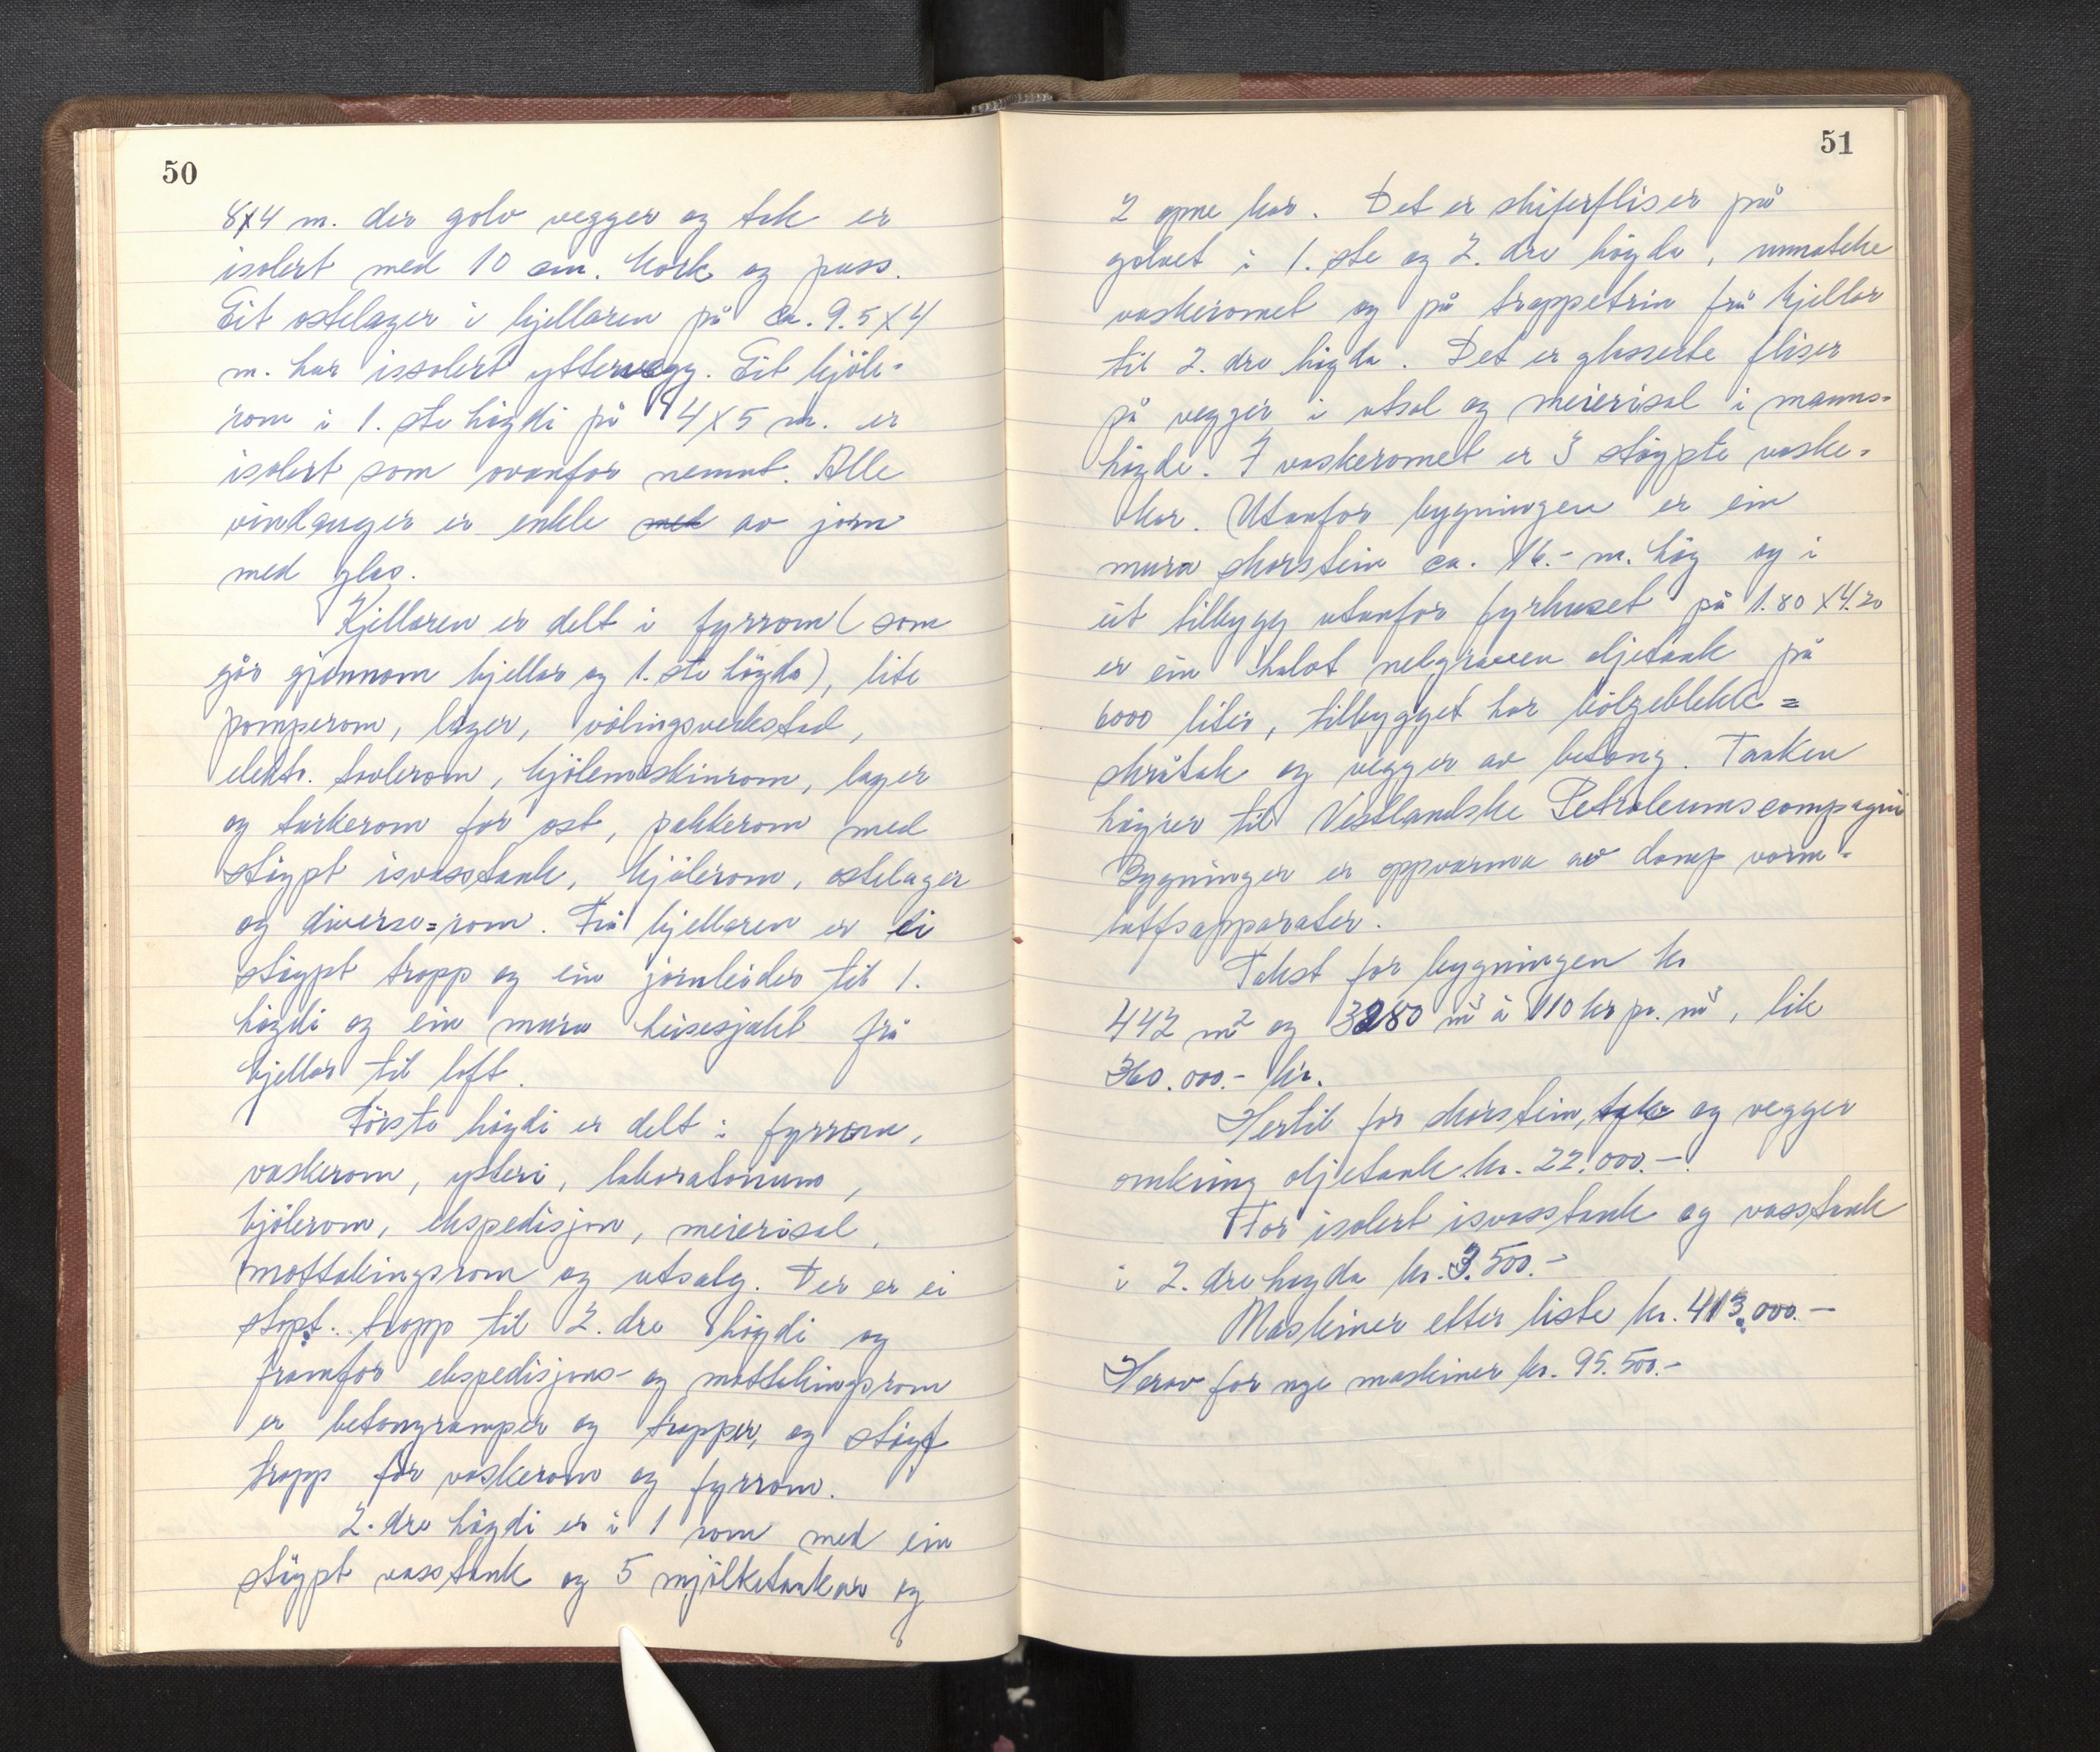 50
8x4 m. der golv vegger og tak er
isolert med 10 cm. kork og puss.
Eit ostelager i kjellaren på ca. 9.5 x 4
m. har issolert yttervegg. Eit kjöle-
rom i 1. ste högdi på 4 x 5 m. er
isolert som ovanfor nemnt. Alle
vindauger er enkle med av jarn
med glas.
Kjellaren er delt i fyrrom (som
går gjennom kjellar og 1. ste högda), lite
pomperom, lager, völingsverkstad,
elektr. tavlerom, kjölemaskinrom, lager
og tørkerom for ost, pakkerom med
stöypt isvasstank, kjölerom, ostelager
og diverse=rom. Frå kjellaren er ei
stöypt tropp og ein jarnleider til 1.
högdi og ein mura heisesjakt frå
kjellar til loft.
Förste högdi er delt i fyrrom,
vaskerom, ysteri, laboratorium,
kjölerom, ekspedisjon, meierisal,
mottakingsrom og utsalg. Der er ei
stopt. tropp til 2. dre högdi og
framfor ekspedisjons- og mottakingsrom
er betongramper og tropper, og stöypt
tropp for vaskerom og fyrrom.
2. dre högdi er i 1 rom med ein
stöypt vasstank og 5 mjölketankar og
51
2 opne kar. Det er skiferfliser på
golvet i 1. ste og 2. dre högda, unnateke
vaskeromet og på troppetrin frå kjellar
til 2. dre högda. Det er glasserte fliser
på vegger i utsal og meierisal i manns-
högde. I vaskeromet er 3 stöypte vaske-
kar. Utanfor bygningen er ein
mura skorstein ca. 16.- m. hög og i
eit tilbygg utanfor fyrhuset på 1.80 x 4.20
er ein halvt nelgraven oljetank på
6000 liter, tilbygget har bölgeblekk=
skråtak og vegger av betong. Tanken
höyrer til Vestlandske Petroleumscompagni
Bygningen er oppvarma av damp varm-
luftsapparater.
Takst for bygningen kr
442 m² og 3280 m³ à 110 kr pr. m³, lik
360.000.- kr.
Hertil for skorstein, tak og vegger
omkring oljetank kr. 22.000.-
For isolert isvasstank og vasstank
i 2. dre hogda kr. 3.500.-
Maskiner etter liste kr. 413.000.-
Herav for nye maskiner kr. 95.500.-